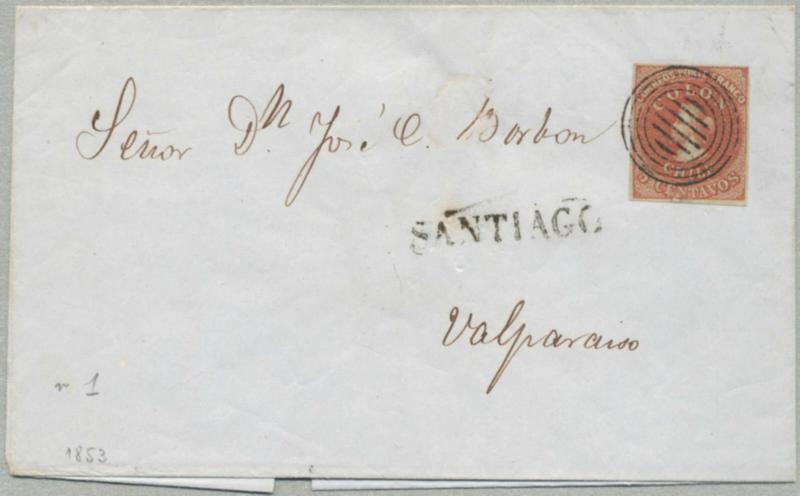 Señor Dn José C. Borbon
CORREOS PORTE FRANCO
COLON
CHILE
5 CENTAVOS
SANTIAGO
Valparaiso
1
1853